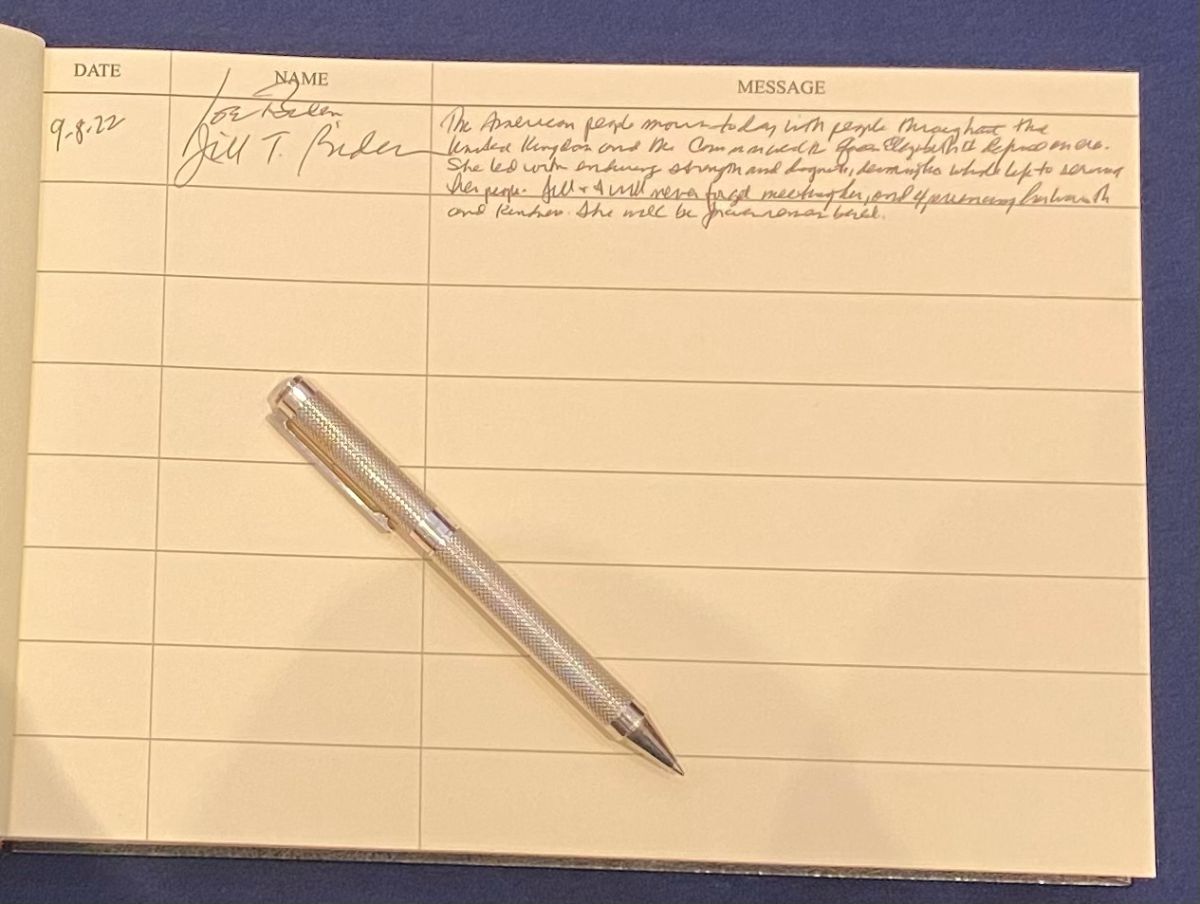 DATE NAME MESSAGE
9-8-22
Joe Biden
Jill T. Biden
The American people mourn today with people throughout the
United Kingdom and the Commonwealth. Queen Elizabeth II defined an era.
She led with enduring strength and dignity, devoting her whole life to serving
her people. Jill + I will never forget meeting her, and experiencing her warmth
and kindness. She will be remembered.